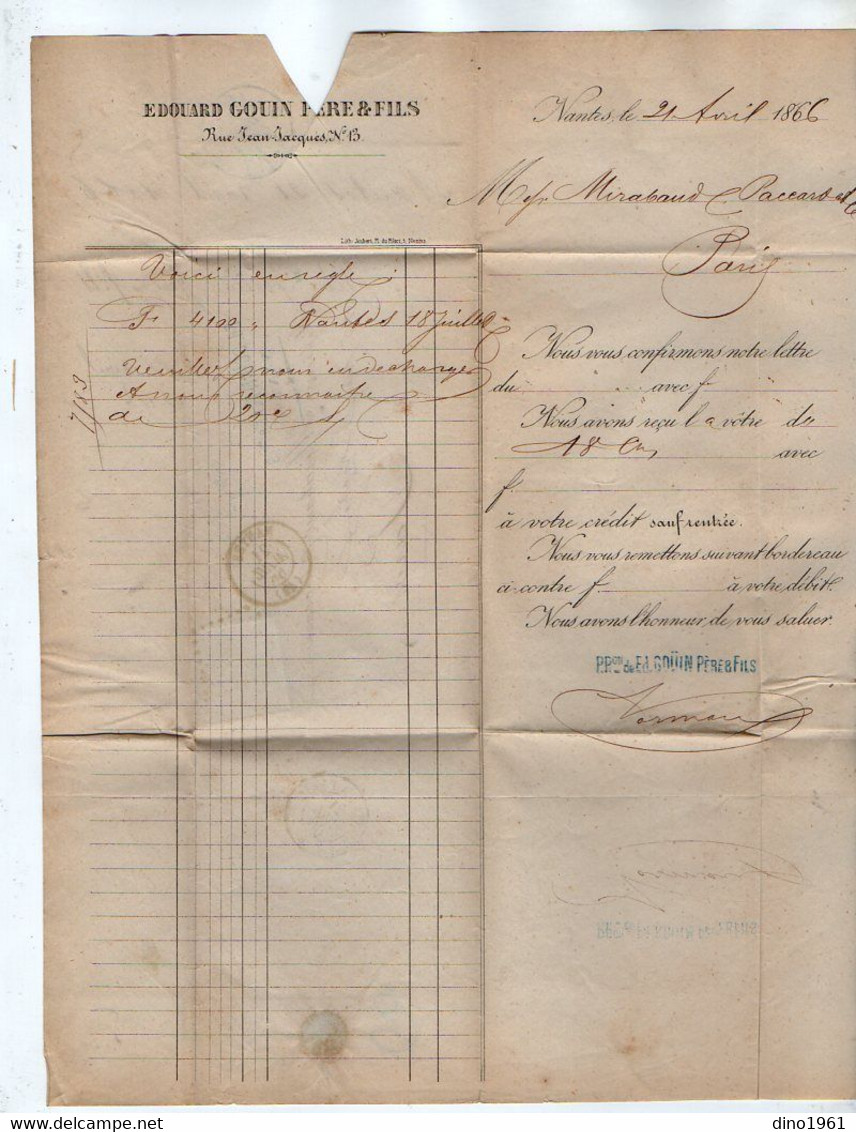 EDOUARD GOUIN PÈRE & FILS
Rue Jean-Jacques, N° 13.
Nantes, le 21 Avril 1866
Messrs Mirabaud Paccard et C
Paris
Lith. Nantes
Voici en règle :
F 4100 " Nantes 18 Juillet
Veuillez nous en décharger
& nous reconnaître
de
7183
Nous vous confirmons notre lettre
du avec f.
Nous avons reçu la vôtre du
18 Ct avec
f.
à votre crédit sauf rentrée.
Nous vous remettons suivant bordereau
ci-contre f. à votre débit.
Nous avons l'honneur de vous saluer.
P.Pon de Ed. GOÜIN PÈRE & FILS
dino1961